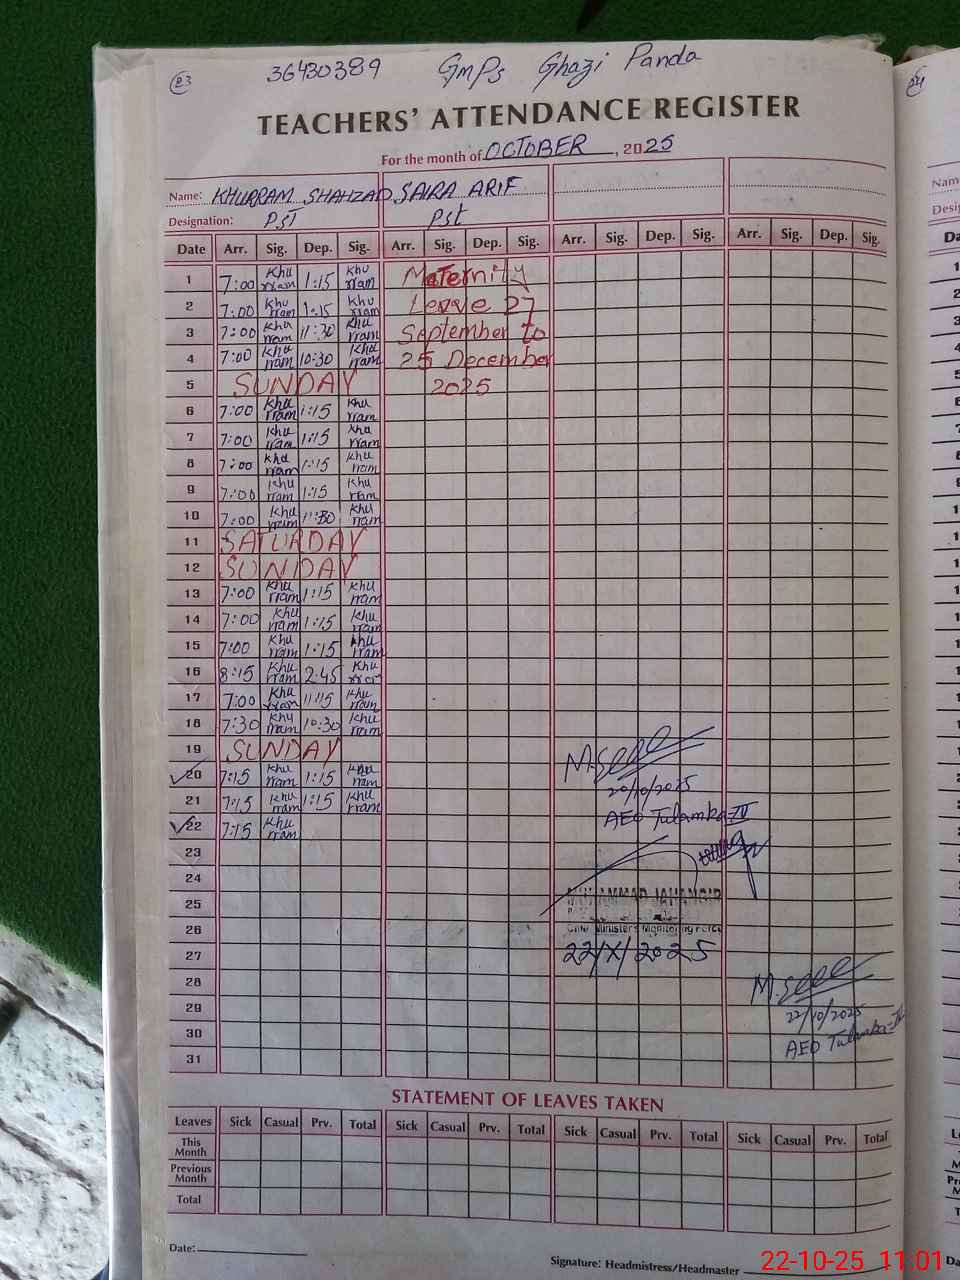 23 36430389 GMPS Ghazi Panda
TEACHERS' ATTENDANCE REGISTER
For the month of OCTOBER, 2025
Name: KHURRAM SHAHZAD SAIRA ARIF
Designation: PST Pst
Date Arr. Sig. Dep. Sig. Arr. Sig. Dep. Sig. Arr. Sig. Dep. Sig. Arr. Sig. Dep. Sig.
1 7:00 Khurram 1:15 Khurram Maternity
2 7:00 Khurram 1:15 Khurram Leave 27
3 7:00 Khurram 11:30 Khurram September to
4 7:00 Khurram 10:30 Khurram 25 December
5 SUNDAY 2025
6 7:00 Khurram 1:15 Khurram
7 7:00 Khurram 1:15 Khurram
8 7:00 Khurram 1:15 Khurram
9 7:00 Khurram 1:15 Khurram
10 7:00 Khurram 11:30 Khurram
11 SATURDAY
12 SUNDAY
13 7:00 Khurram 1:15 Khurram
14 7:00 Khurram 1:15 Khurram
15 7:00 Khurram 1:15 Khurram
16 8:15 Khurram 2:45 Khurram
17 7:00 Khurram 11:15 Khurram
18 7:30 Khurram 10:30 Khurram
19 SUNDAY
20 7:15 Khurram 1:15 Khurram
20/10/2025
21 7:15 Khurram 1:15 Khurram
AEO Tulamba-IV
22 7:15 Khurram
23
24
25 MUHAMMAD JAHANGIR
26 Chief Minister's Monitoring Force
27 22/X/2025
28
29 22/10/2025
30 AEO Tulamba-IV
31
STATEMENT OF LEAVES TAKEN
Leaves Sick Casual Prv. Total Sick Casual Prv. Total Sick Casual Prv. Total Sick Casual Prv. Total
This Month
Previous Month
Total
Date:
Signature: Headmistress/Headmaster
22-10-25 11:01